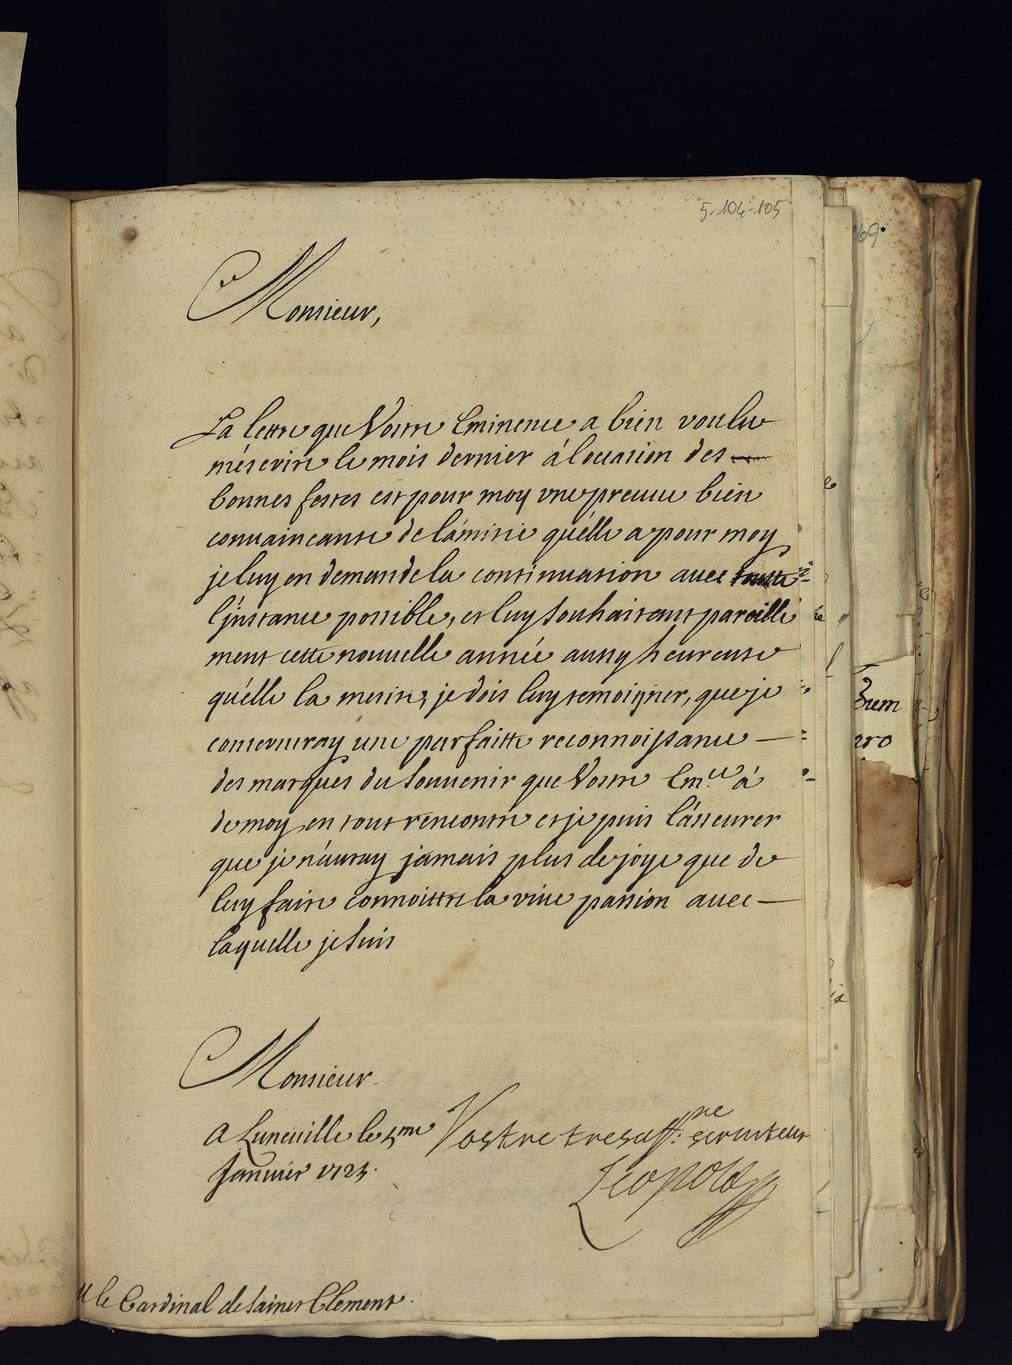 5-104-105
Monsieur,
La lettre que Vostre Eminence a bien voulu
m'éscrire le mois dernier à l'occasion des
bonnes festes est pour moy une preuue bien
conuaincante de l'ámitié qu'élle a pour moy
je luy en demande la continuation auec toutte
l'jnstance possible, et luy souhaitant pareille
ment cette nouuelle année aussy heureuse
qu'élle la merite, je dois luy temoigner, que je
conserueray une parfaitte reconnoissance —
des marques du souuenir que Vostre Em.ce à
de moy en tout rencontre et je puis l'ásseurer
que je n'áuray jamais plus de joye que de
luy faire connoittre la viue passion auec —
laquelle je suis
Monsieur.
A Luneuille le 5me Vostre tresaff:ne seruiteur
Januier 1723. Leopold
M le Cardinal de Sainct Clement.
69
Brem
aro